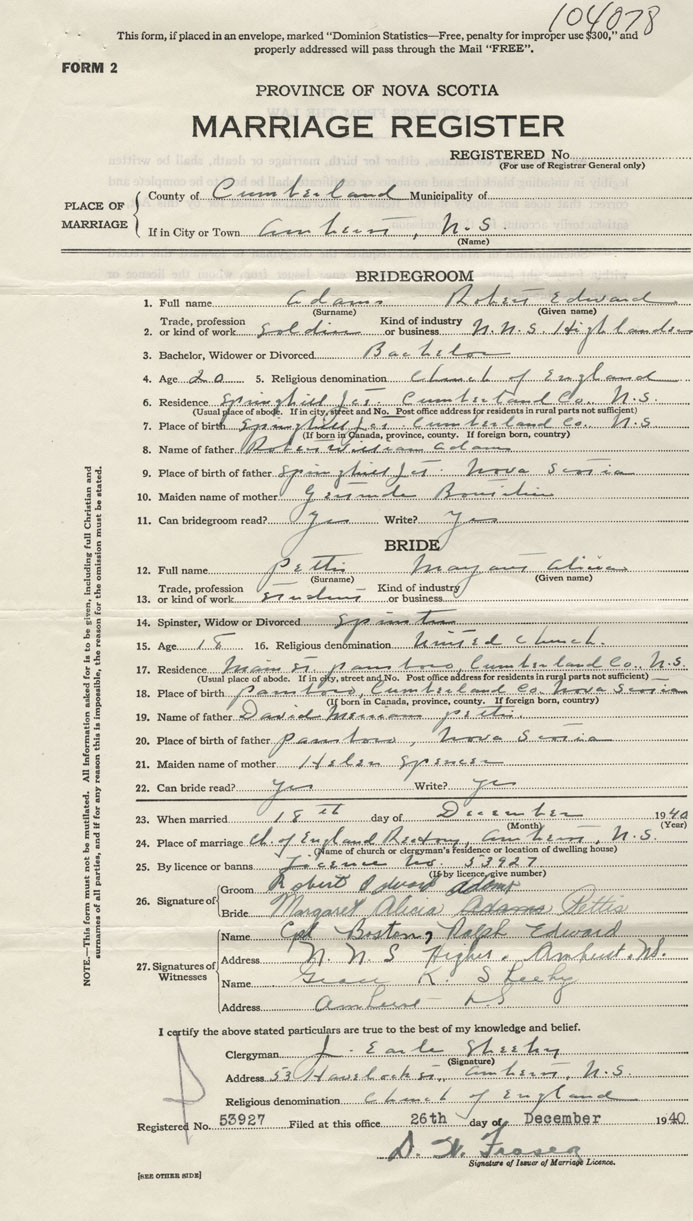 104078
This form, if placed in an envelope, marked "Dominion Statistics—Free, penalty for improper use $300," and
properly addressed will pass through the Mail "FREE".
FORM 2
PROVINCE OF NOVA SCOTIA
MARRIAGE REGISTER
REGISTERED No.
(For use of Registrar General only)
PLACE OF MARRIAGE
County of Cumberland Municipality of
If in City or Town Amherst, N.S.
(Name)
BRIDEGROOM
1. Full name Adams Robert Edward
(Surname) (Given name)
2. Trade, profession or kind of work Soldier Kind of industry or business N.N.S. Highlanders
3. Bachelor, Widower or Divorced Bachelor
4. Age 20 5. Religious denomination Church of England
6. Residence Springhill Jct. Cumberland Co., N.S.
(Usual place of abode. If in city, street and No. Post office address for residents in rural parts not sufficient)
7. Place of birth Springhill Jct. Cumberland Co., N.S.
(If born in Canada, province, county. If foreign born, country)
8. Name of father William Adams
9. Place of birth of father Springhill Jct. Nova Scotia
10. Maiden name of mother Gertrude
11. Can bridegroom read? Yes Write? Yes
BRIDE
12. Full name Pettis Margaret Alicia
(Surname) (Given name)
13. Trade, profession or kind of work Student Kind of industry or business
14. Spinster, Widow or Divorced Spinster
15. Age 18 16. Religious denomination United Church.
17. Residence Main St. Parrsboro, Cumberland Co., N.S.
(Usual place of abode. If in city, street and No. Post office address for residents in rural parts not sufficient)
18. Place of birth Parrsboro, Cumberland Co. Nova Scotia
(If born in Canada, province, county. If foreign born, country)
19. Name of father David Pettis.
20. Place of birth of father Parrsboro, Nova Scotia
21. Maiden name of mother Helen Spencer
22. Can bride read? Yes Write? Yes
23. When married 18th day of December 1940
(Month) (Year)
24. Place of marriage Ch. of England Rectory, Amherst, N.S.
(Name of church or clergyman's residence or location of dwelling house)
25. By licence or banns Licence No. 53927
(If by licence, give number)
26. Signature of
Groom Robert Edward Adams
Bride Margaret Alicia Adams Pettis
27. Signatures of Witnesses
Name Cpl Boston, Ralph Edward
Address N. N. S Highrs. Amherst. NS.
Name Grace K. Sheehy
Address Amherst NS
I certify the above stated particulars are true to the best of my knowledge and belief.
Clergyman J. Earle Sheehy
(Signature)
Address 53 Havelock St., Amherst, N.S.
Religious denomination Church of England
Registered No. 53927 Filed at this office 26th day of December 1940
D. W. Fraser
Signature of Issuer of Marriage Licence.
[SEE OTHER SIDE]
NOTE.—This form must not be mutilated. All information asked for is to be given, including full Christian and
surnames of all parties, and if for any reason this is impossible, the reason for the omission must be stated.